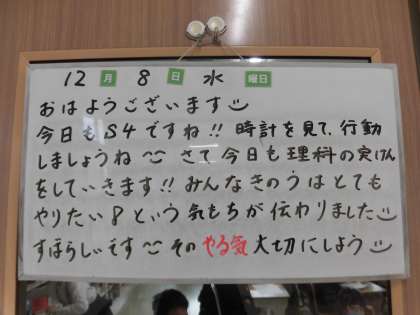 12月8日水曜日
おはようございます
今日もS4ですね!! 時計を見て、行動
しましょうね さて今日も理科の実けん
をしていきます!! みんなきのうはとても
やりたい8という気もちが伝わりました
すばらしいです その やる気 大切にしよう